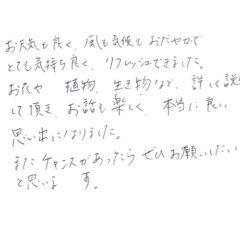 お天気も良く、風も気候もおだやかで
とても気持ち良く、リフレッシュできました。
お花や 植物、生き物など、詳しく説
して頂き、お話も楽しく、本当に良い
思い出になりました。
またチャンスがあったら ぜひお願いしたい
と思いま す。